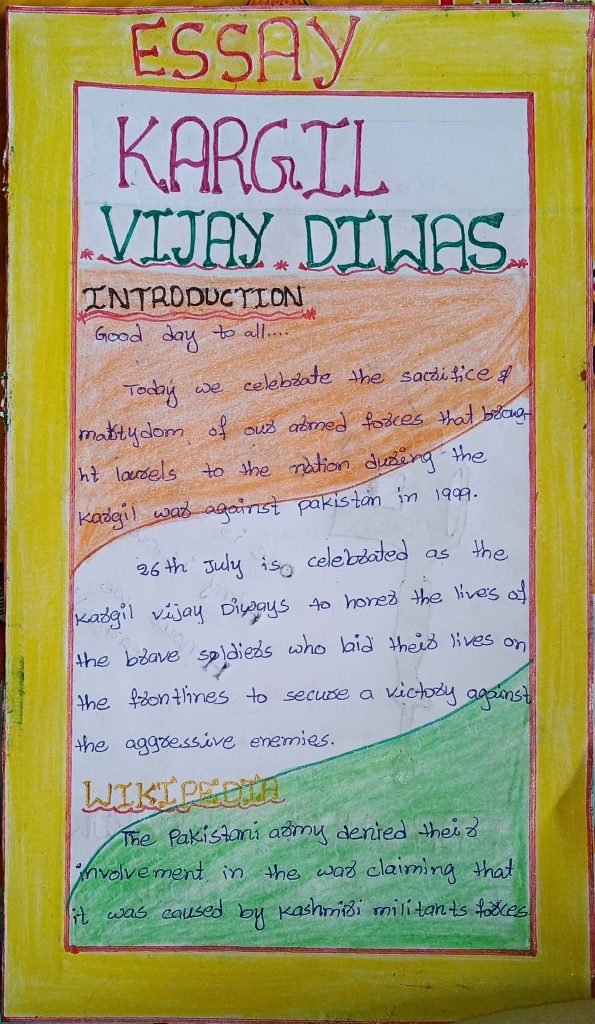 ESSAY
KARGIL
VIJAY DIWAS
INTRODUCTION
Good day to all....
Today we celebrate the sacrifice &
martydom of our armed forces that broug-
ht laurels to the nation during the
Kargil war against pakistan in 1999.
26th July is celebrated as the
Kargil vijay Diways to honer the lives of
the brave soldiers who laid their lives on
the frontlines to secure a victory against
the aggressive enemies.
WIKIPEDIA
The Pakistani army denied their
involvement in the war claiming that
it was caused by Kashmiri militants forces.